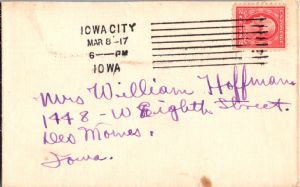 IOWA CITY
MAR 8 - 17
6 — PM
IOWA
Mrs William Hoffman
1448 - W Eighth Street.
Des Moines.
Iowa.